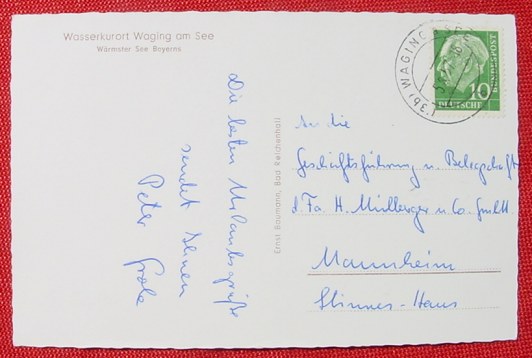 Wasserkurort Waging am See
Wärmster See Bayerns
Die besten Urlaubsgrüße
sendet Ihnen
Peter
Ernst Baumann, Bad Reichenhall
(13b) WAGING
DEUTSCHE
BUNDESPOST
10
An die
Geschäftsführung u. Belegschaft
d. Fa. H. u. Co. GmbH
Mannheim
Stinnes-Haus